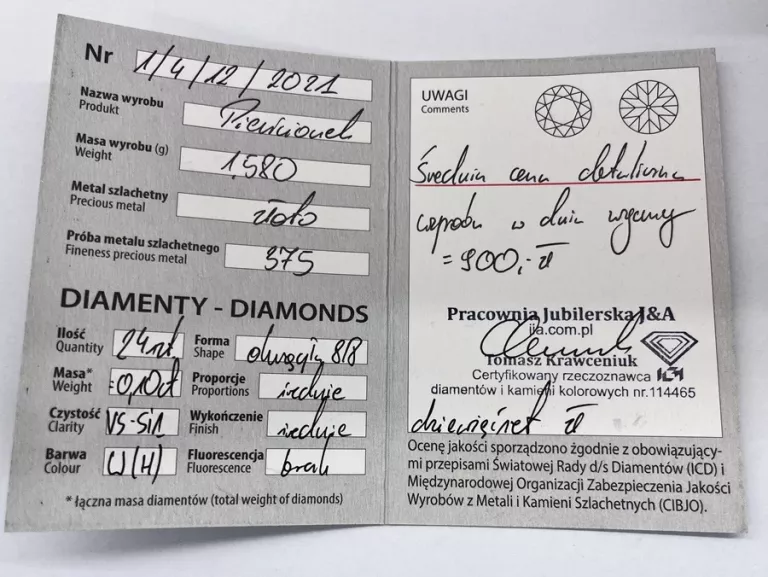 Nr 1/4/12/2021
Nazwa wyrobu Pierścionek
Produkt
Masa wyrobu (g) 1,580
Weight
Metal szlachetny złoto
Precious metal
Próba metalu szlachetnego 375
Fineness precious metal
DIAMENTY - DIAMONDS
Ilość 24szt. Forma okrągła 8/8
Quantity Shape
Masa* =0,10ct Proporcje średnie
Weight Proportions
Czystość VS-SI1 Wykończenie średnie
Clarity Finish
Barwa W(H) Fluorescencja brak
Colour Fluorescence
* łączna masa diamentów (total weight of diamonds)
UWAGI
Comments
Średnia cena detaliczna
wyrobu w dniu wyceny
= 900,- zł
Pracownia Jubilerska J&A
jia.com.pl
Tomasz Krawceniuk
Certyfikowany rzeczoznawca
diamentów i kamieni kolorowych nr.114465
dziewięćset zł
Ocenę jakości sporządzono zgodnie z obowiązujący-
mi przepisami Światowej Rady d/s Diamentów (ICD) i
Międzynarodowej Organizacji Zabezpieczenia Jakości
Wyrobów z Metali i Kamieni Szlachetnych (CIBJO).